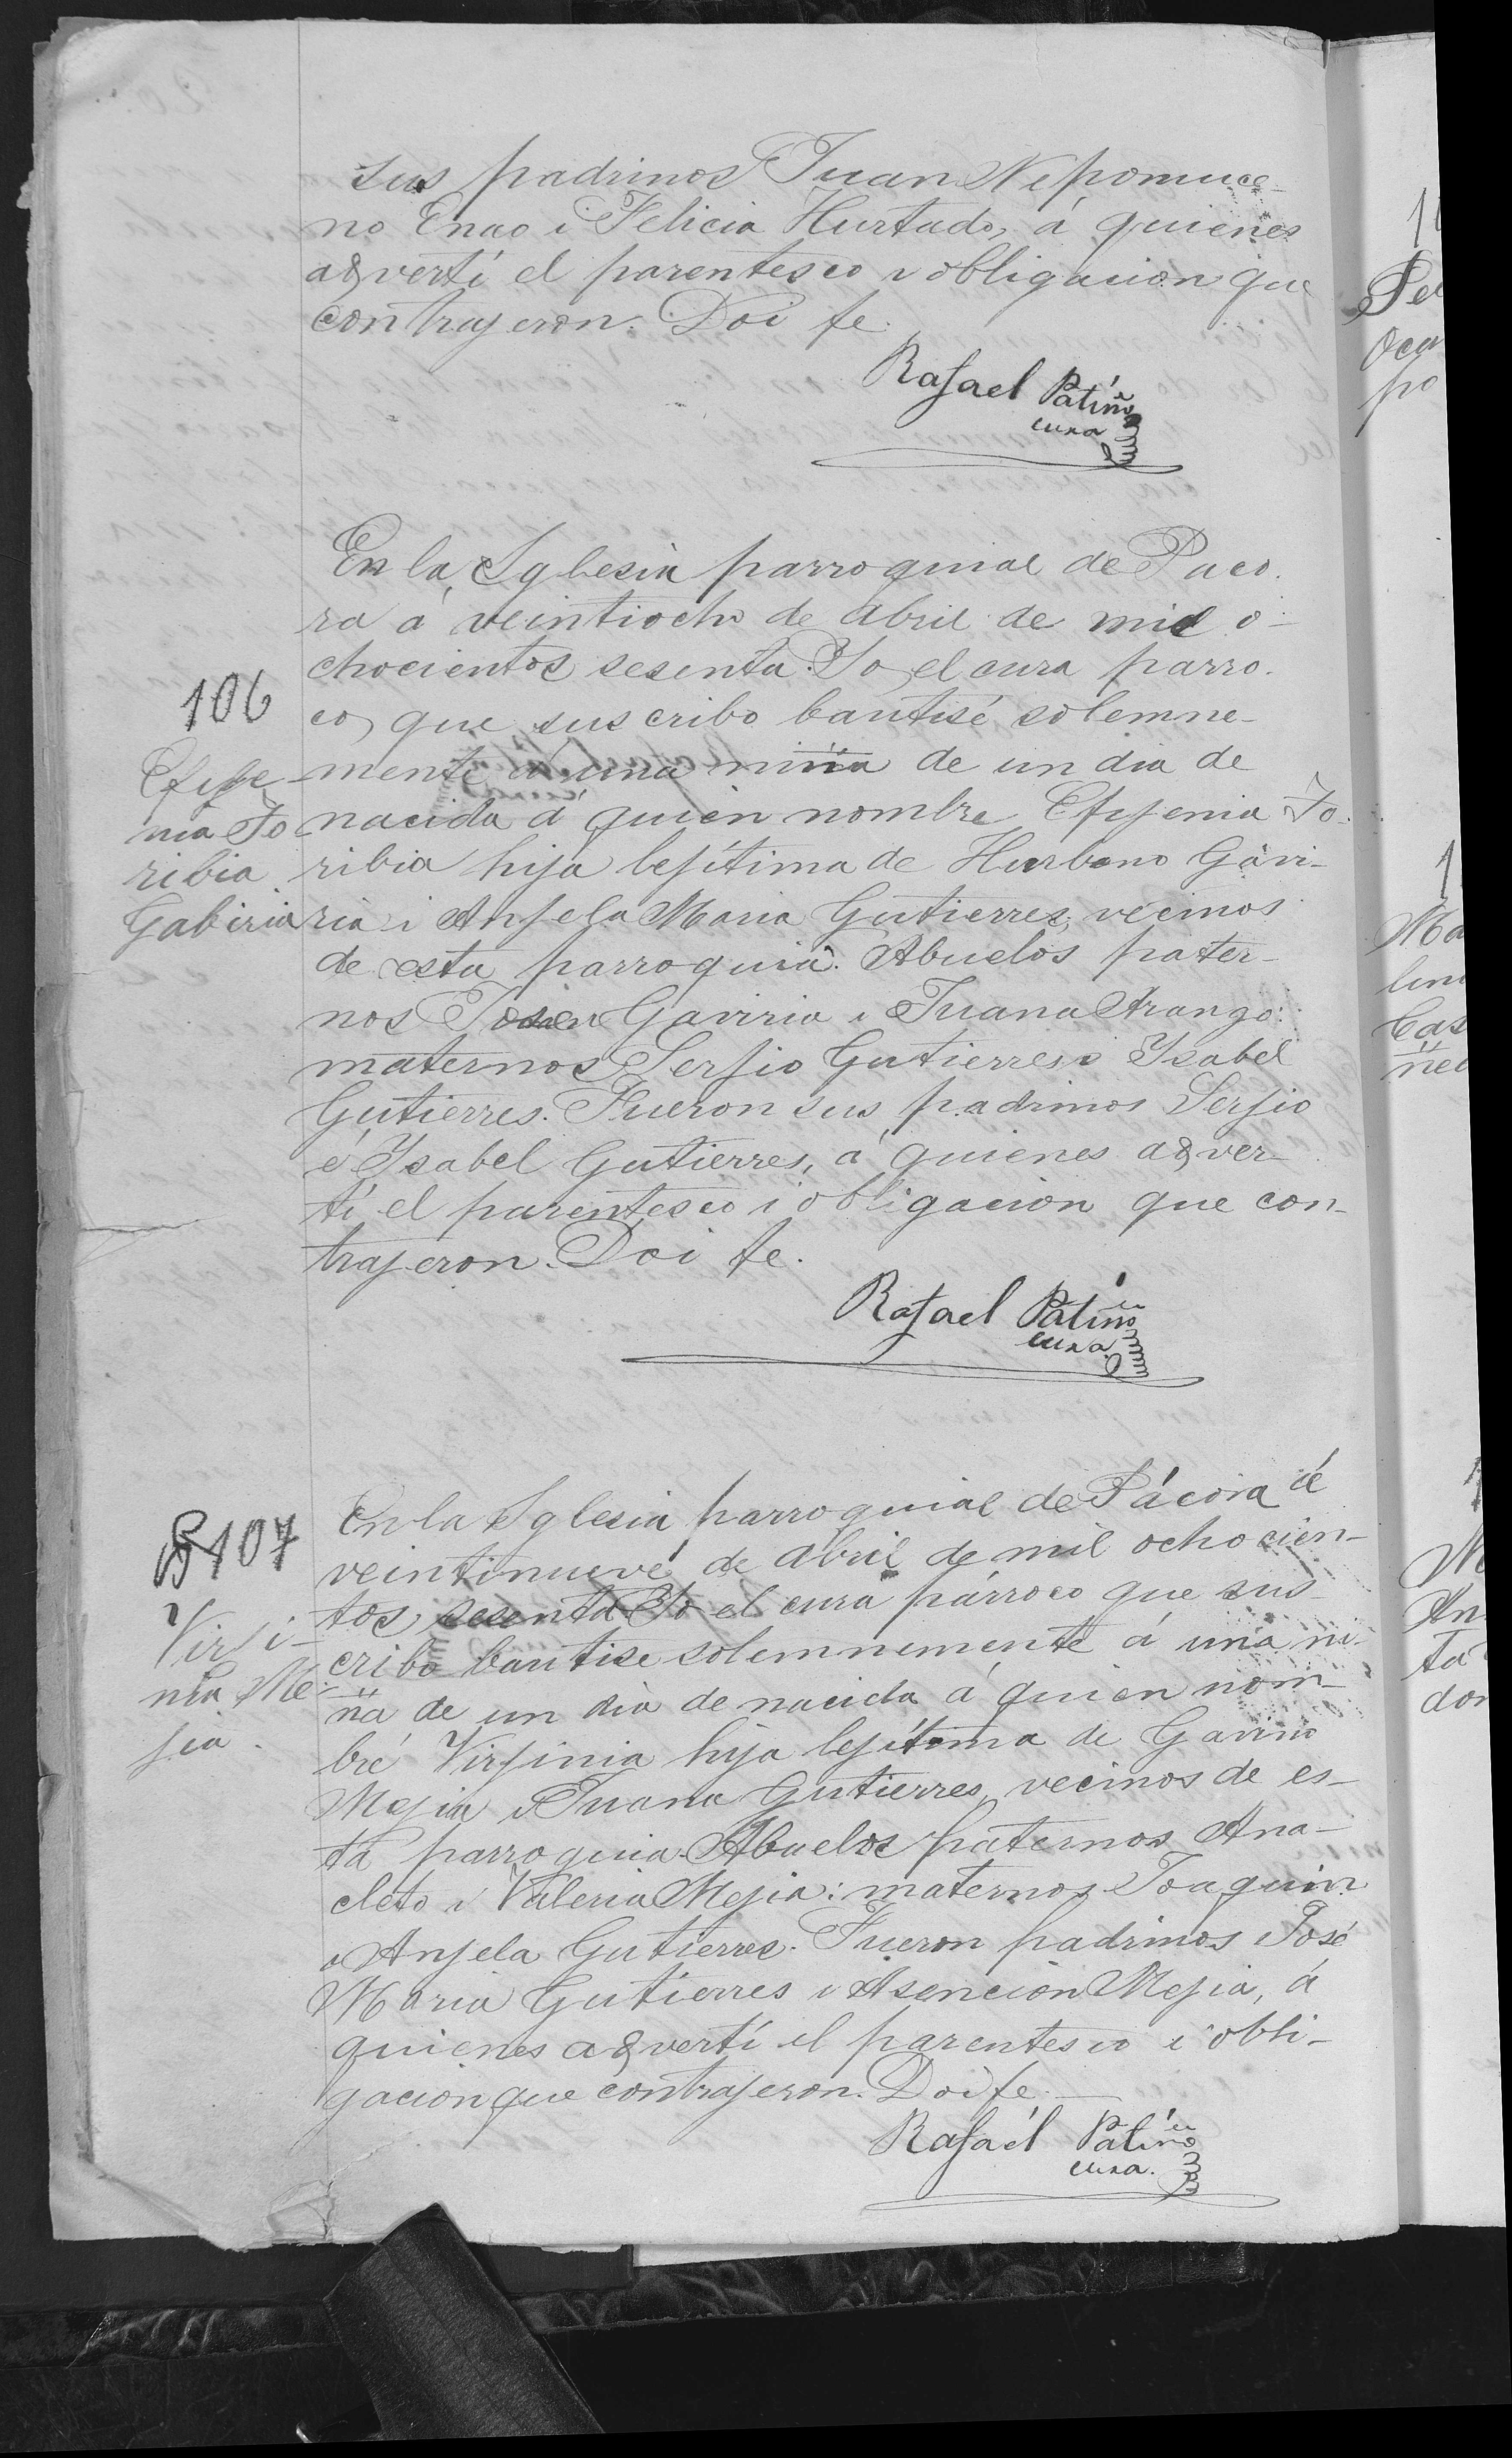 sus padrinos Juan Nepomuce-
no Enao i Felicia Hurtado, á quienes
adverti el parentesco i obligacion que
contrajeron. Doi fe.
Rafael Patiño
cura
En la Yglesia parroquial de Paco.
ra á veintiocho de abril de mil o-
chocientos sesenta. Yo el cura parro.
co, que suscribo bautisé solemne-
mente á una niña de un dia de
nacida á quien nombre Efijenia To-
ribia hija lejítima de Hurbano Gavi-
ria i Anjela Maria Gutierres, vecinos
de esta parroquia. Abuelos pater-
nos Gaviria i Juana Arango:
maternos Serjio Gutierres i Ysabel
Gutierres. Fueron sus padrinos Serjio
é Ysabel Gutierres, á quienes adver-
tí el parentesco i obligacion que con-
trajeron. Doi fe.
Rafael Patiño
cura
106
Efije-
nia To
ribia
Gabiria
En la Yglesia parroquial de Pácora á
veintinueve de abril de mil ochocien-
tos sesenta Yo el cura párroco que sus-
cribo bautise solemnemente á una ni-
ña de un dia de nacida á quien nom-
bré Virjinia hija lejítima de Gavino
Mejia i Juana Gutierres, vecinos de es-
ta parroquia. Abuelos paternos Ana-
cleto i Valeria Mejia: maternos Joaquin
i Anjela Gutierres. Fueron padrinos José
Maria Gutierres i Asencion Mejia, á
quienes advertí el parentesco i obli-
gacion que contrajeron. Doi fe.
Rafaél Patiño
cura.
107
Virji-
nia Me
jia.